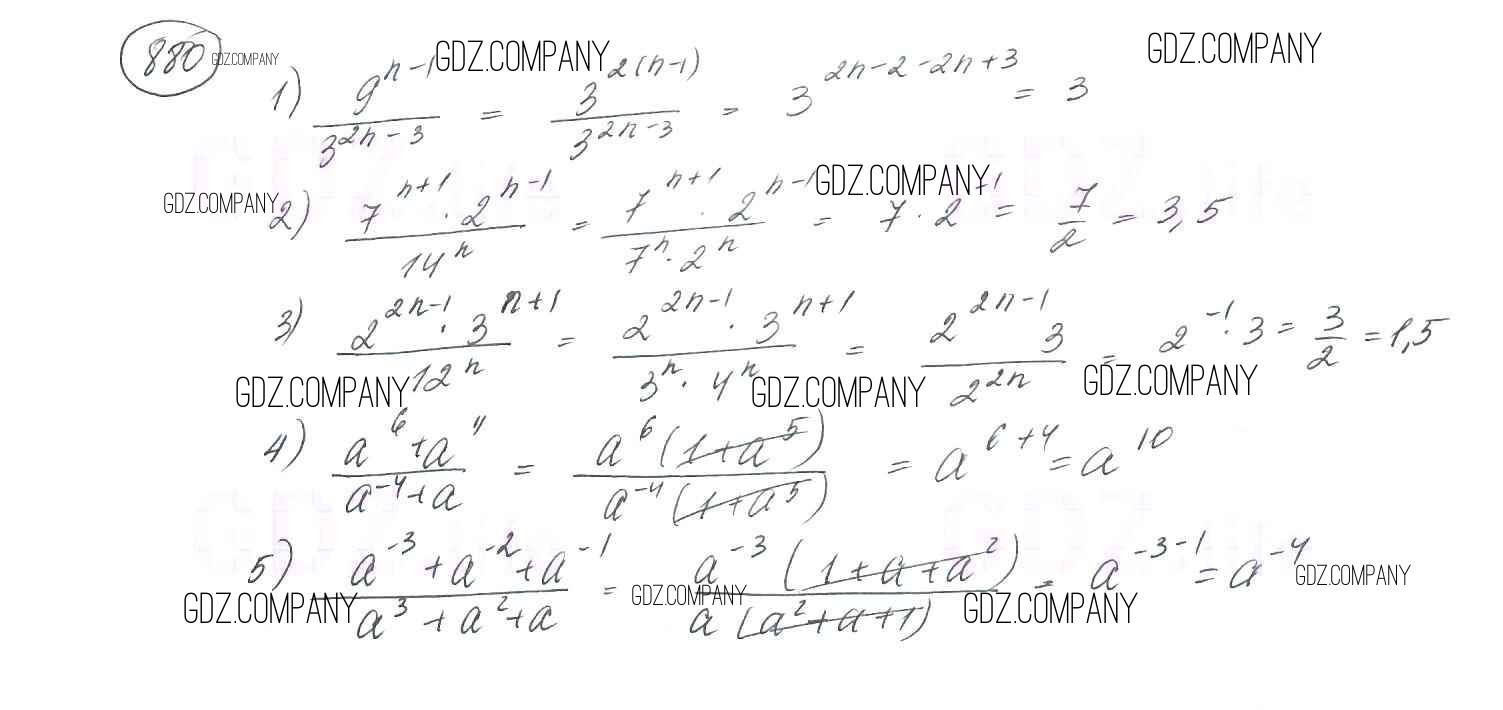 880 GDZ.COMPANY GDZ.COMPANY GDZ.COMPANY
1) 9^(n-1) / 3^(2n-3) = 3^(2(n-1)) / 3^(2n-3) = 3^(2n-2-2n+3) = 3
GDZ.COMPANY GDZ.COMPANY
2) 7^(n+1) · 2^(n-1) / 14^n = 7^(n+1) · 2^(n-1) / 7^n · 2^n = 7 · 2^(-1) = 7/2 = 3,5
3) 2^(2n-1) · 3^(n+1) / 12^n = 2^(2n-1) · 3^(n+1) / 3^n · 4^n = 2^(2n-1) 3 / 2^(2n) = 2^(-1) · 3 = 3/2 = 1,5
GDZ.COMPANY GDZ.COMPANY GDZ.COMPANY
4) a^6 + a^11 / a^(-4) + a = a^6 (1+a^5) / a^(-4) (1+a^5) = a^(6+4) = a^10
5) a^(-3) + a^(-2) + a^(-1) / a^3 + a^2 + a = a^(-3) (1+a+a^2) / a (a^2+a+1) = a^(-3-1) = a^(-4)
GDZ.COMPANY GDZ.COMPANY GDZ.COMPANY GDZ.COMPANY